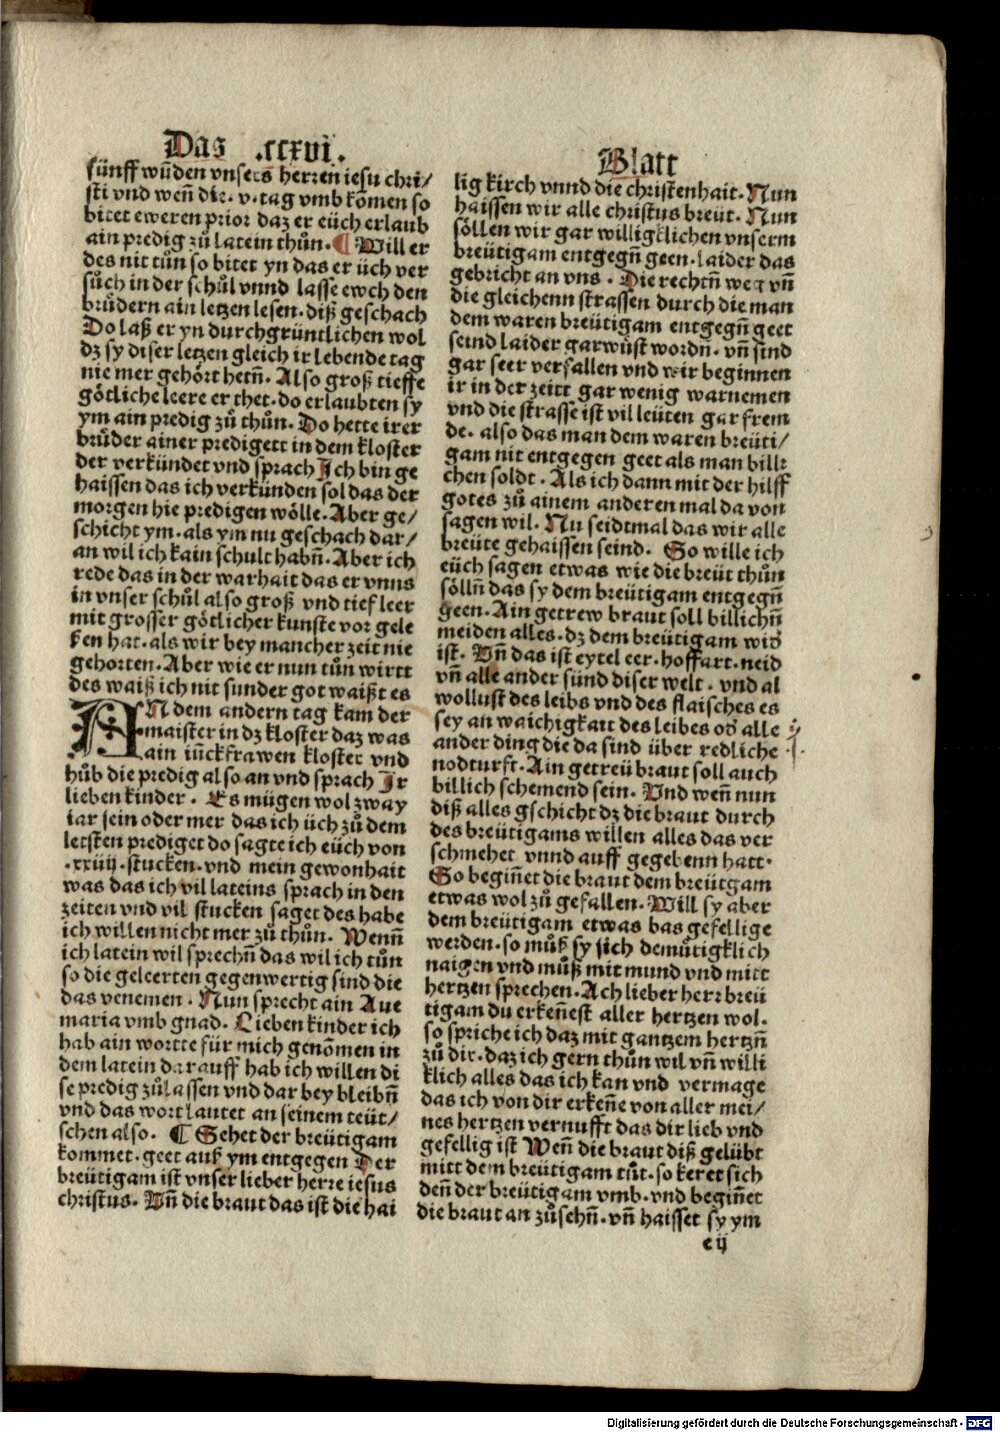 Das .ccxvi. Blatt
fünff wūden vnsers herren iesu chri/
sti vnd weñ die. v. tag vmb kōmen so
bitet eweren prior daz er eüch erlaub
ain predig zů latein thůn. ¶ Will er
des nit tůn so bitet yn das er üch ver
sůch in der schůl vnnd lasse ewch den
brůdern ain letzen lesen. diß geschach
Do laß er yn durchgrüntlichen wol
dz sy diser letzen gleich ir lebende tag
nie mer gehört hetñ. Also groß tieffe
götliche leere er thet. do erlaubten sy
ym ain predig zů thůn. Do hette irer
brůder ainer predigett in dem kloster
der verkündet vnd sprach Ich bin ge
haissen das ich verkünden sol das der
morgen hie predigen wölle. Aber ge/
schicht ym. als ym nu geschach dar/
an wil ich kain schult habñ. Aber ich
rede das in der warhait das er vnns
in vnser schůl also groß vnd tief leer
mit grosser götlicher kunste vor gele
sen hat. als wir bey mancher zeit nie
gehorten. Aber wie er nun tůn wirtt
des waiß ich nit sunder got waißt es
AN dem andern tag kam der
maister in dz kloster daz was
ain iūckfrawen kloster vnd
hůb die predig also an vnd sprach Ir
lieben kinder. Es mügen wol zway
iar sein oder mer das ich üch zů dem
letsten prediget do sagte ich eüch von
.xxiiij. stucken. vnd mein gewonhait
was das ich vil lateins sprach in den
zeiten vnd vil stucken saget des habe
ich willen nicht mer zů thůn. Wenñ
ich latein wil sprechñ das wil ich tůn
so die geleerten gegenwertig sind die
das venemen. Nun sprecht ain Aue
maria vmb gnad. Lieben kinder ich
hab ain wortte für mich genōmen in
dem latein darauff hab ich willen di
se predig zůlassen vnd dar bey bleibñ
vnd das wort lautet an seinem teüt/
schen also. ¶ Sehet der breütigam
kommet. geet auß ym entgegen Der
breütigam ist vnser lieber herre iesus
christus. Vñ die braut das ist die hai
lig kirch vnnd die christenhait. Nun
haissen wir alle christus breüt. Nun
söllen wir gar willigklichen vnserm
breütigam entgegñ geen. laider das
gebricht an vns. Die rechtñ weg vñ
die gleichenn strassen durch die man
dem waren breütigam entgegñ geet
seind laider gar wüst wordñ. vñ sind
gar seer verfallen vnd wir beginnen
ir in der zeitt gar wenig warnemen
vnd die strasse ist vil leüten gar frem
de. also das man dem waren breüti/
gam nit entgegen geet als man billi
chen soldt. Als ich dann mit der hilff
gotes zů ainem anderen mal da von
sagen wil. Nu seidtmal das wir alle
breüte gehaissen seind. So wille ich
eüch sagen etwas wie die breüt thůn
söllñ das sy dem breütigam entgegñ
geen. Ain getrew braut soll billichñ
meiden alles. dz dem breütigam wid
ist. Vñ das ist eytel eer. hoffart. neid
vñ alle ander sünd diser welt. vnd al
wollust des leibs vnd des flaisches es
sey an waichigkait des leibes od alle
ander ding die da sind über redliche
nodturft. Ain getreü braut soll auch
billich schemend sein. Vnd weñ nun
diß alles gschicht dz die braut durch
des breütigams willen alles das ver
schmehet vnnd auff gegebenn hatt.
So begiñet die braut dem breütgam
etwas wol zů gefallen. Will sy aber
dem breütigam etwas bas gefellige
werden. so můß sy sich demůtigklich
naigen vnd můß mit mund vnd mitt
hertzen sprechen. Ach lieber herr breü
tigam du erkeñest aller hertzen wol.
so spriche ich daz mit gantzem hertzñ
zů dir. daz ich gern thůn wil vñ willi
klich alles das ich kan vnd vermage
das ich von dir erkeñe von aller mei/
nes hertzen vernufft das dir lieb vnd
gefellig ist Weñ die braut diß gelübt
mitt dem breütigam tůt. so keret sich
deñ der breütigam vmb. vnd begiñet
die braut an zůsehñ. vñ haisset sy ym
e ij
Digitalisierung gefördert durch die Deutsche Forschungsgemeinschaft - DFG